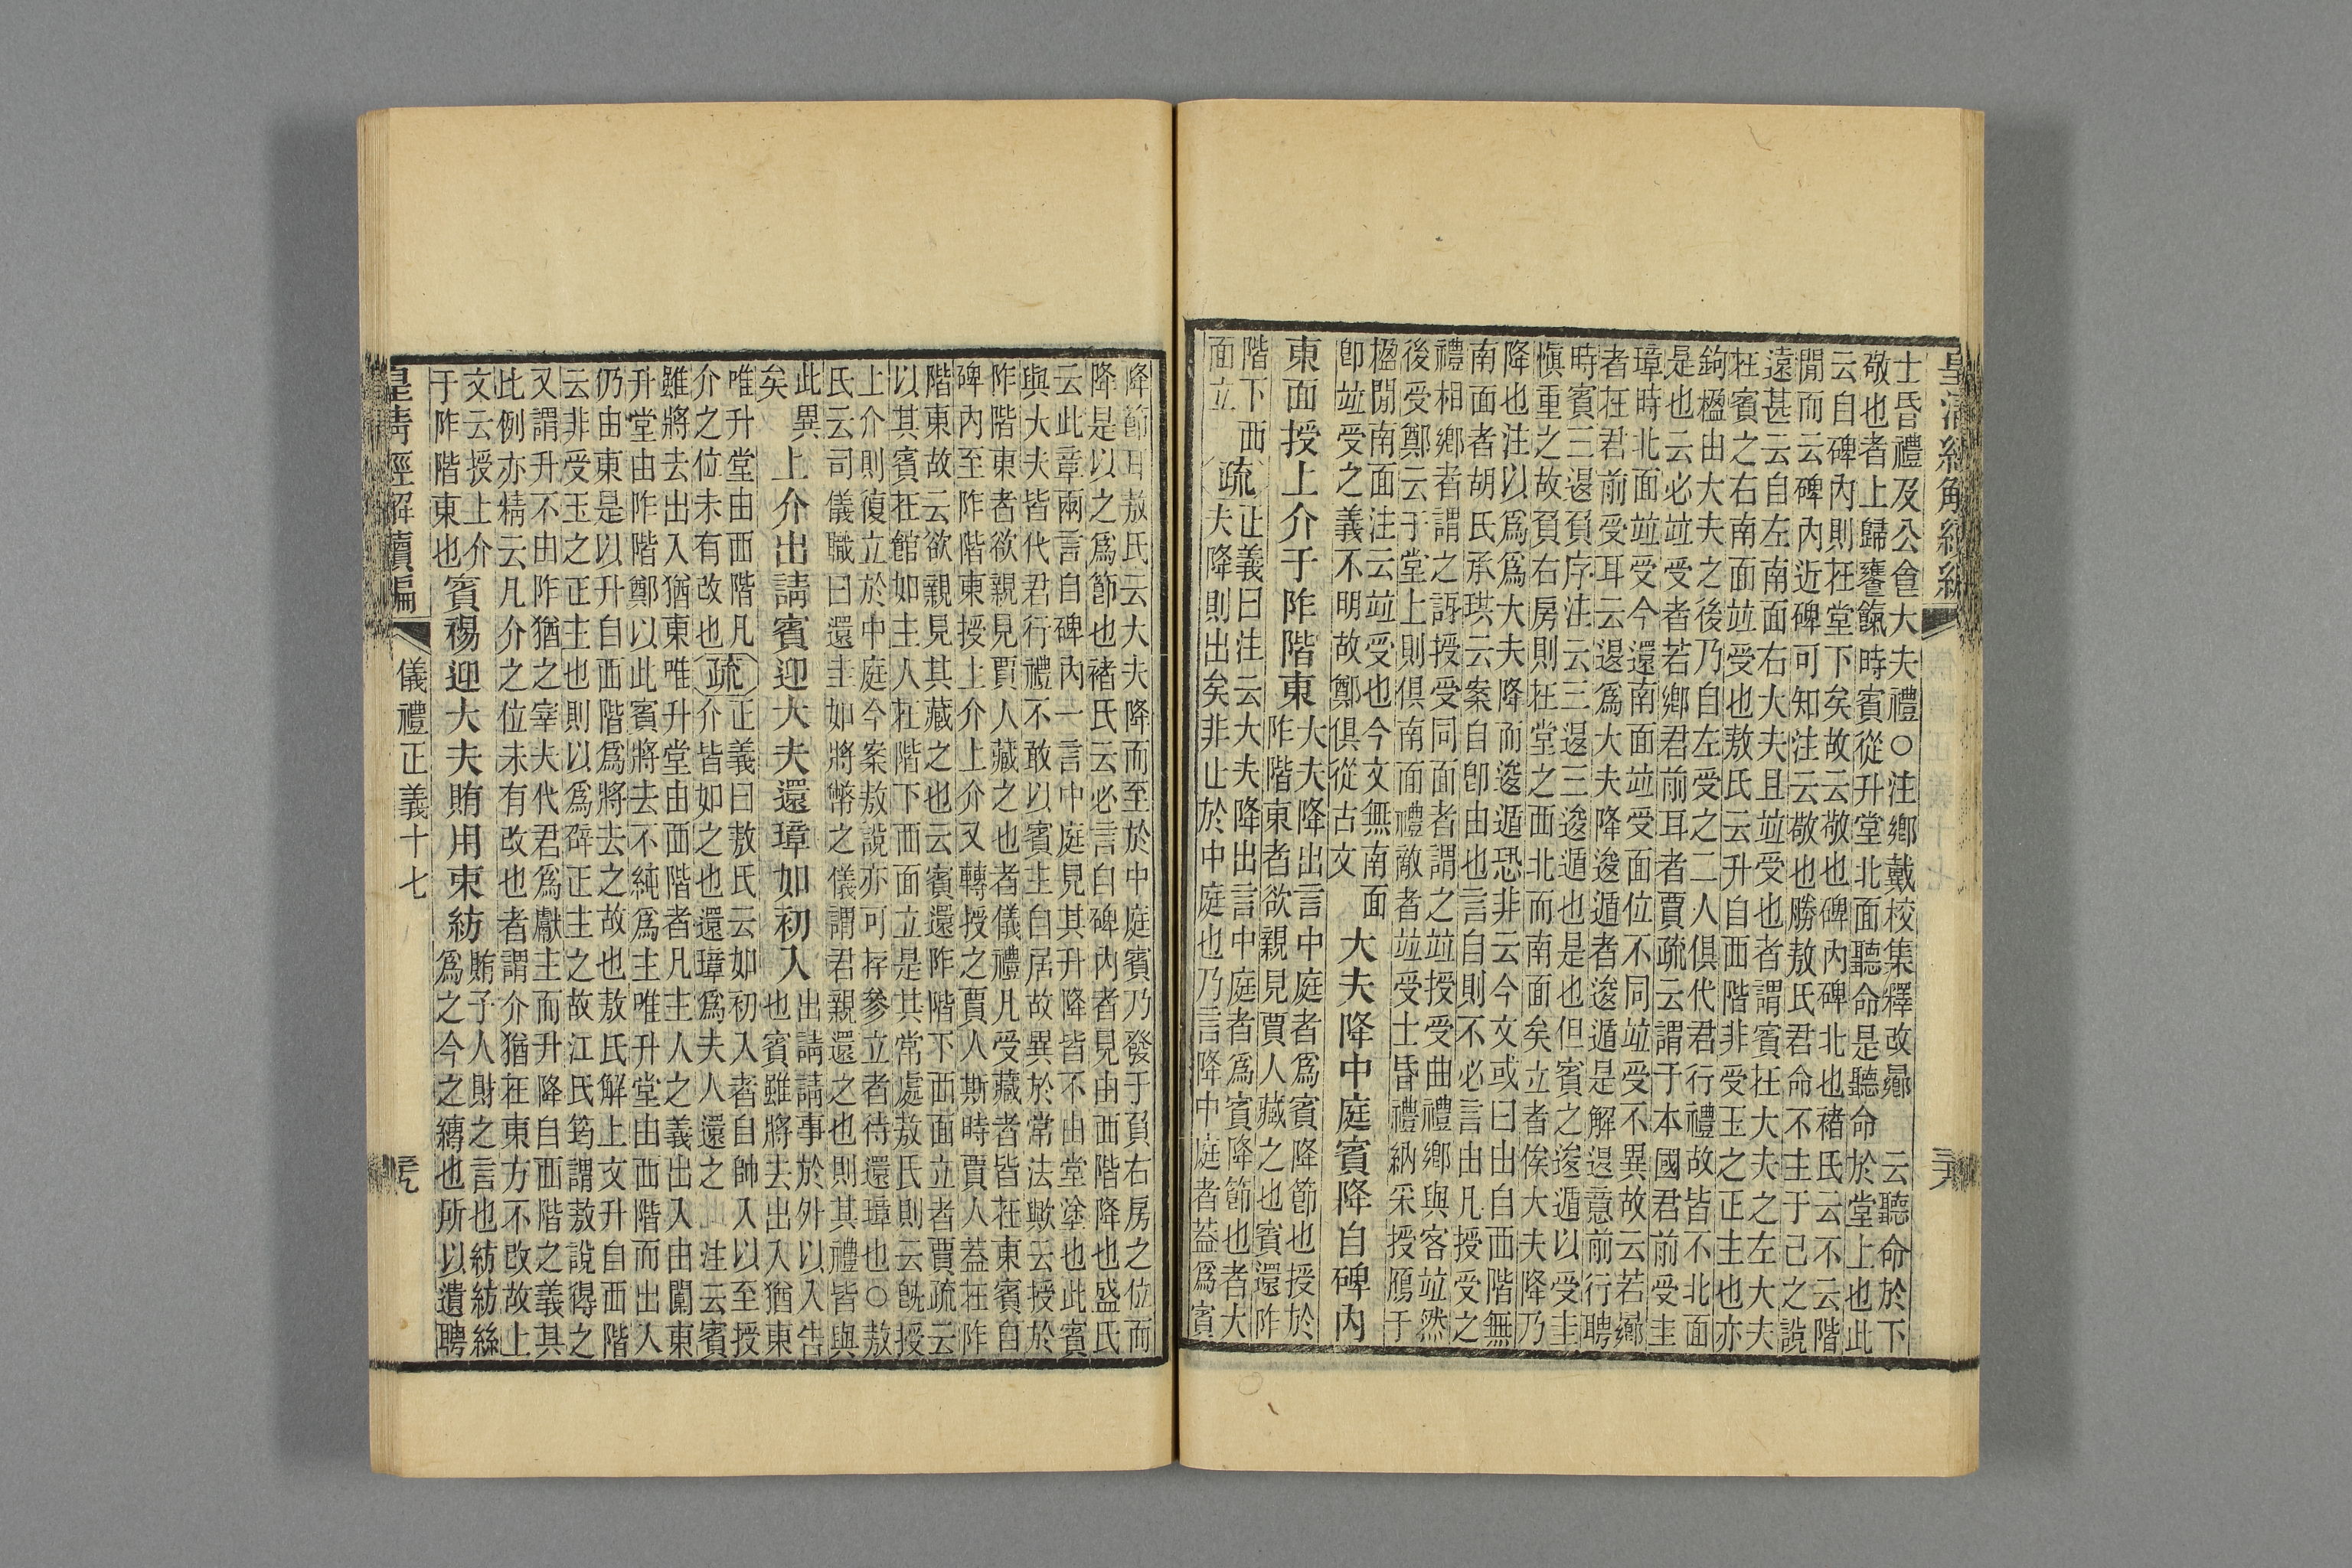 皇清經解續編
士昏禮及公食大夫禮○注鄉戴校集釋改曏云聽命於下
敬也者上歸饔餼時賓從升堂北面聽命是聽命於堂上也此
云自碑內則在堂下矣故云敬也碑內碑北也褚氏云不云階
閒而云碑內近碑可知注云敬也勝敖氏君命不主于己之說
遠甚云自左南面右大夫且並受也者謂賓在大夫之左大夫
在賓之右南面並受也敖氏云升自西階非受玉之正主也亦
鉤楹由大夫之後乃自左受之二人俱代君行禮故皆不北面
是也云必並受者若鄉君前耳者賈疏云謂于本國君前受圭
璋時北面並受今還南面並受面位不同並受不異故云若曏
者在君前受耳云退爲大夫降逡遁者逡遁是解退意前行聘
時賓三退負序注云三退三逡遁也是也但賓之逡遁以受圭
愼重之故負右房則在堂之西北而南面矣立者俟大夫降乃
降也注以爲爲大夫降而逡遁恐非云今文或曰由自西階無
南面者胡氏承珙云案自卽由也言自則不必言由凡授受之
禮相鄉者謂之訝授受同面者謂之並授受曲禮鄉與客並然
後受鄭云于堂上則俱南面禮敵者並受士昏禮納采授鴈于
楹閒南面注云並受也今文無南面
卽並受之義不明故鄭俱從古文
大夫降中庭賓降自碑內
東面授上介于阼階東
大夫降出言中庭者爲賓降節也授於
阼階東者欲親見賈人藏之也賓還阼
階下西
面立
疏
正義曰注云大夫降出言中庭者爲賓降節也者大
夫降則出矣非止於中庭也乃言降中庭者蓋爲賓
降節耳敖氏云大夫降而至於中庭賓乃發于負右房之位而
降是以之爲節也褚氏云必言自碑內者見由西階降也盛氏
云此章兩言自碑內一言中庭見其升降皆不由堂塗也此賓
與大夫皆代君行禮不敢以賓主自居故異於常法歟云授於
阼階東者欲親見賈人藏之也者儀禮凡受藏者皆在東賓自
碑內至阼階東授上介上介又轉授之賈人斯時賈人蓋在阼
階東故云欲親見其藏之也云賓還阼階下西面立者賈疏云
以其賓在館如主人在階下西面立是其常處敖氏則云旣授
上介則復立於中庭今案敖說亦可存參立者待還璋也○敖
氏云司儀職曰還圭如將幣之儀謂君親還之也則其禮皆與
此異
矣
上介出請賓迎大夫還璋如初入
出請請事於外以入告
也賓雖將去出入猶東
唯升堂由西階凡
介之位未有改也
疏
正義曰敖氏云如初入者自帥入以至授
介皆如之也還璋爲夫人還之注云賓
雖將去出入猶東唯升堂由西階者凡主人之義出入由闑東
升堂由阼階鄭以此賓將去不純爲主唯升堂由西階而出入
仍由東是以升自西階爲將去之故也敖氏解上文升自西階
云非受玉之正主也則以爲碎正主之故江氏筠謂敖說得之
又謂升不由阼猶之宰夫代君爲獻主而升降自西階之義其
此例亦精云凡介之位未有改也者謂介猶在東方不改故上
文云授上介
于阼階東也
賓裼迎大夫賄用束紡
賄予人財之言也紡紡絲
爲之今之縳也所以遺聘
皇清經解續編
儀禮正義十七